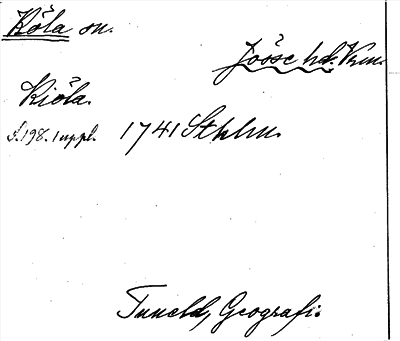 Köla sn.
Jösse hd. Vrm.
Kiöla.
s. 198. 1 uppl. 1741 Sthlm.
Tuneld, Geografi.